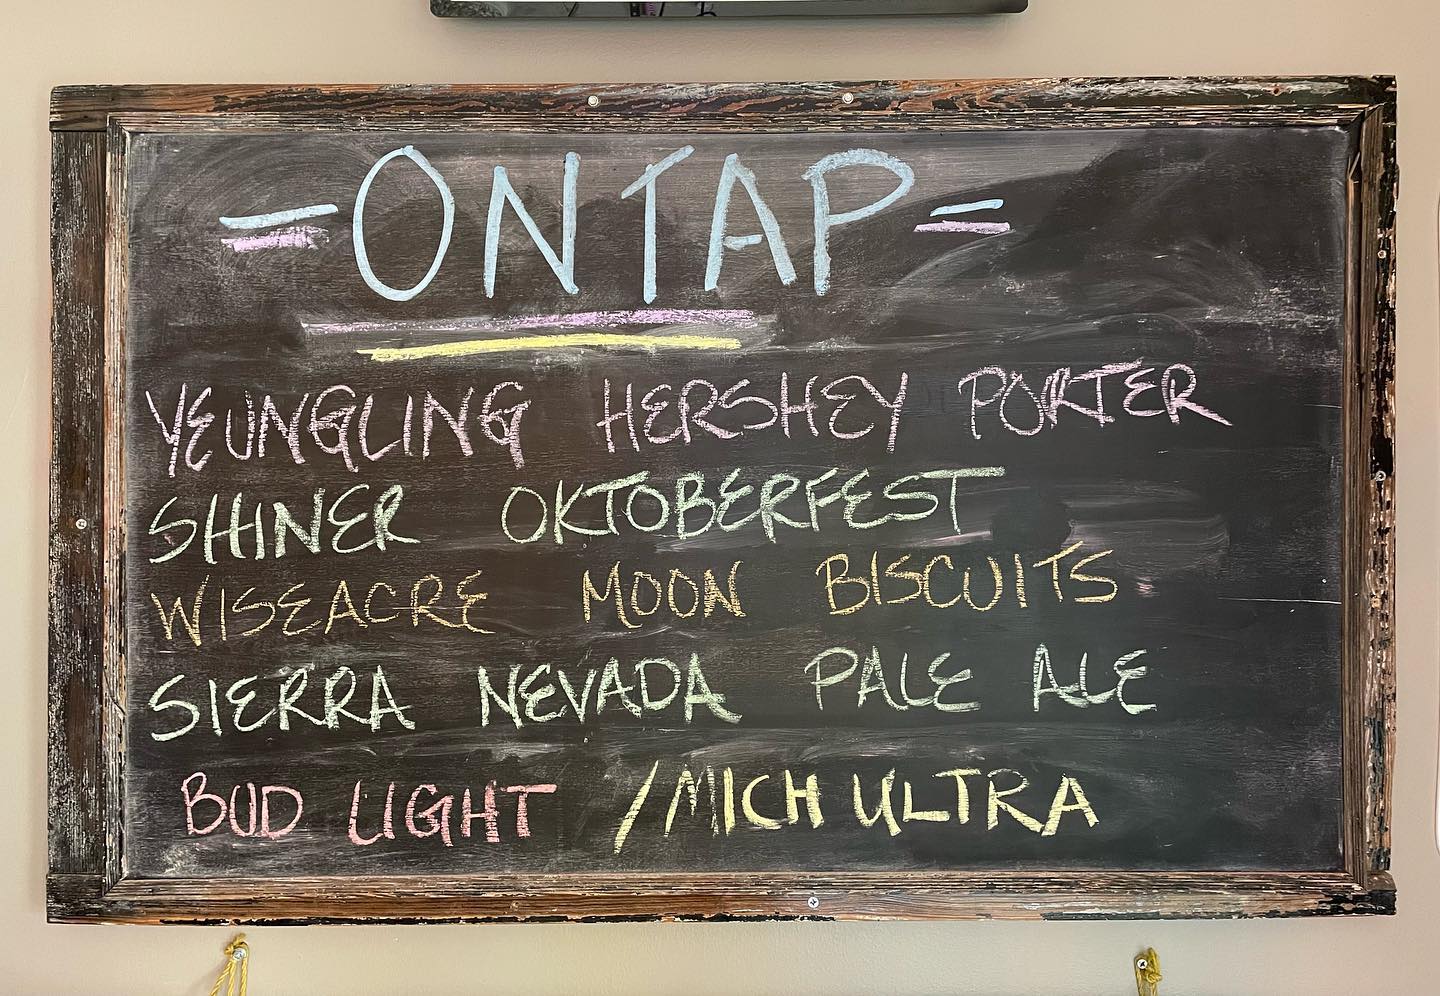 =ON TAP=
YEUNGLING HERSHEY PORTER
SHINER OKTOBERFEST
WISEACRE MOON BISCUITS
SIERRA NEVADA PALE ALE
BUD LIGHT /MICH ULTRA